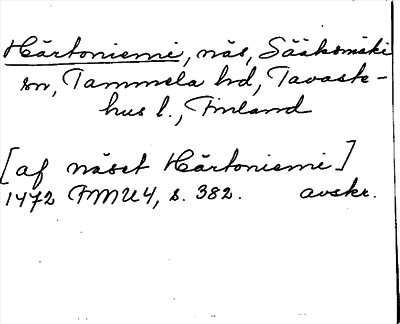 Härtoniemi, näs, Sääksmäki
sn, Tammela hd, Tavaste-
hus l., Finland
[af näset Härtoniemi]
1472 FMU4, s. 382. avskr.